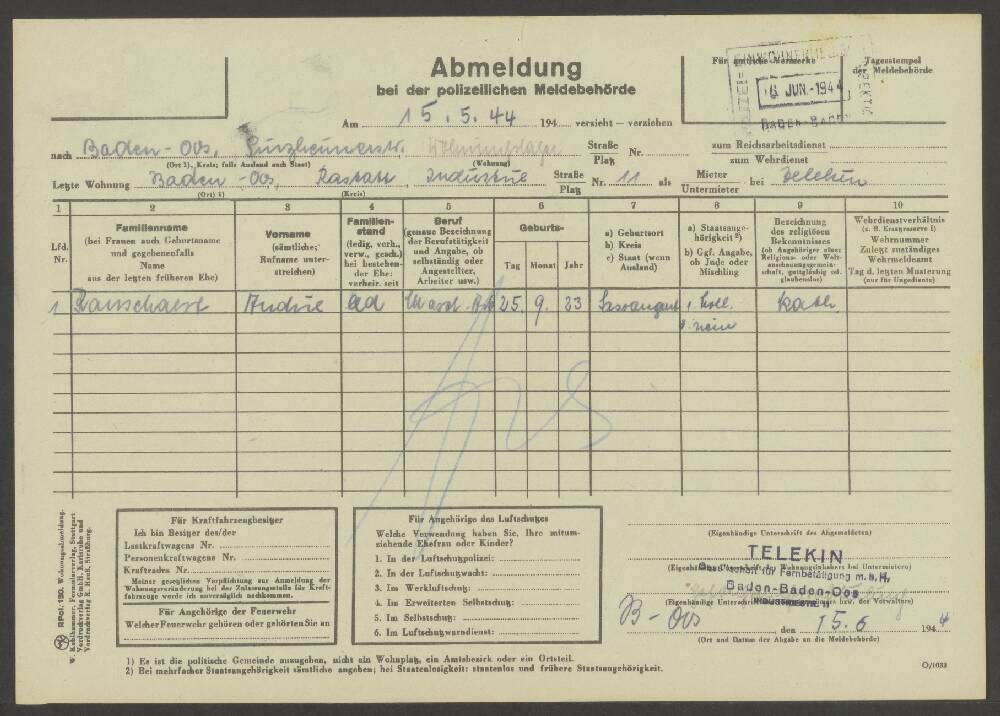 Abmeldung
bei der polizeilichen Meldebehörde
Für amtliche Vermerke
Tagesstempel
der Meldebehörde
JUN.-1944
Baden-Baden
Am 15.5.44 194 versieht — verziehen
nach Baden-Oos, Straße
Platz Nr.
(Ort 2), Kreis; falls Ausland auch Staat) (Wohnung)
zum Reichsarbeitsdienst
zum Wehrdienst
Letzte Wohnung Baden-Oos, Rastatt, Industrie Straße
Platz Nr. 11 als Mieter
Untermieter bei Telekin
(Ort) 1) (Kreis)
1 2 3 4 5 6 7 8 9 10
Lfd.
Nr.
Familienname
(bei Frauen auch Geburtsname
und gegebenenfalls
Name
aus der letzten früheren Ehe)
Vorname
(sämtliche;
Rufname unter-
streichen)
Familien-
stand
(ledig, verh.,
verw., gesch.)
bei bestehen-
der Ehe:
verheir. seit
Beruf
(genaue Bezeichnung
der Berufstätigkeit
und Angabe, ob
selbständig oder
Angestellter,
Arbeiter usw.)
Geburts-
Tag Monat Jahr
a) Geburtsort
b) Kreis
c) Staat (wenn
Ausland)
a) Staatsange-
hörigkeit 2)
b) Ggf. Angabe,
ob Jude oder
Mischling
Bezeichnung
des religiösen
Bekenntnisses
(ob Angehöriger einer
Religions- oder Welt-
anschauungsgemein-
schaft, gottgläubig od.
glaubenslos)
Wehrdienstverhältnis
(z. B. Ersatzreserve I)
Wehrnummer
Zuletzt zuständiges
Wehrmeldeamt
Tag d. letzten Musterung
(nur für Ungediente)
1 Andrie led 25 9. 23 Kath.
nein
RPol: 130. Wohnungsabmeldung.
W. Kohlhammer, Formularverlag, Stuttgart
Vordruckverlag GmbH., Karlsruhe und
Vordruckverlag K. Hauß, Straßburg.
Für Kraftfahrzeugbesitzer
Ich bin Besitzer des/der
Lastkraftwagens Nr.
Personenkraftwagens Nr.
Kraftrades Nr.
Meiner gesetzlichen Verpflichtung zur Anmeldung der
Wohnungsveränderung bei der Zulassungsstelle für Kraft-
fahrzeuge werde ich unverzüglich nachkommen.
Für Angehörige der Feuerwehr
Welcher Feuerwehr gehören oder gehörten Sie an
Für Angehörige des Luftschutzes
Welche Verwendung haben Sie, Ihre mitum-
ziehende Ehefrau oder Kinder?
1. In der Luftschutzpolizei:
2. In der Luftschutzwacht:
3. Im Werkluftschutz:
4. Im Erweiterten Selbstschutz:
5. Im Selbstschutz:
6. Im Luftschutzwarndienst:
(Eigenhändige Unterschrift des Abgemeldeten)
TELEKIN
(Eigenhändige Unterschrift des Wohnungsinhabers bei Untermietern)
Gesellschaft für Fernbetätigung m.b.H.
Baden-Baden-Oos
INDUSTRIESTR. 11
B-Oos den 15.6 1944
(Ort und Datum der Abgabe an die Meldebehörde)
1) Es ist die politische Gemeinde anzugeben, nicht ein Wohnplatz, ein Amtsbezirk oder ein Ortsteil.
2) Bei mehrfacher Staatsangehörigkeit sämtliche angeben; bei Staatenlosigkeit: staatenlos und frühere Staatsangehörigkeit.
O/1033